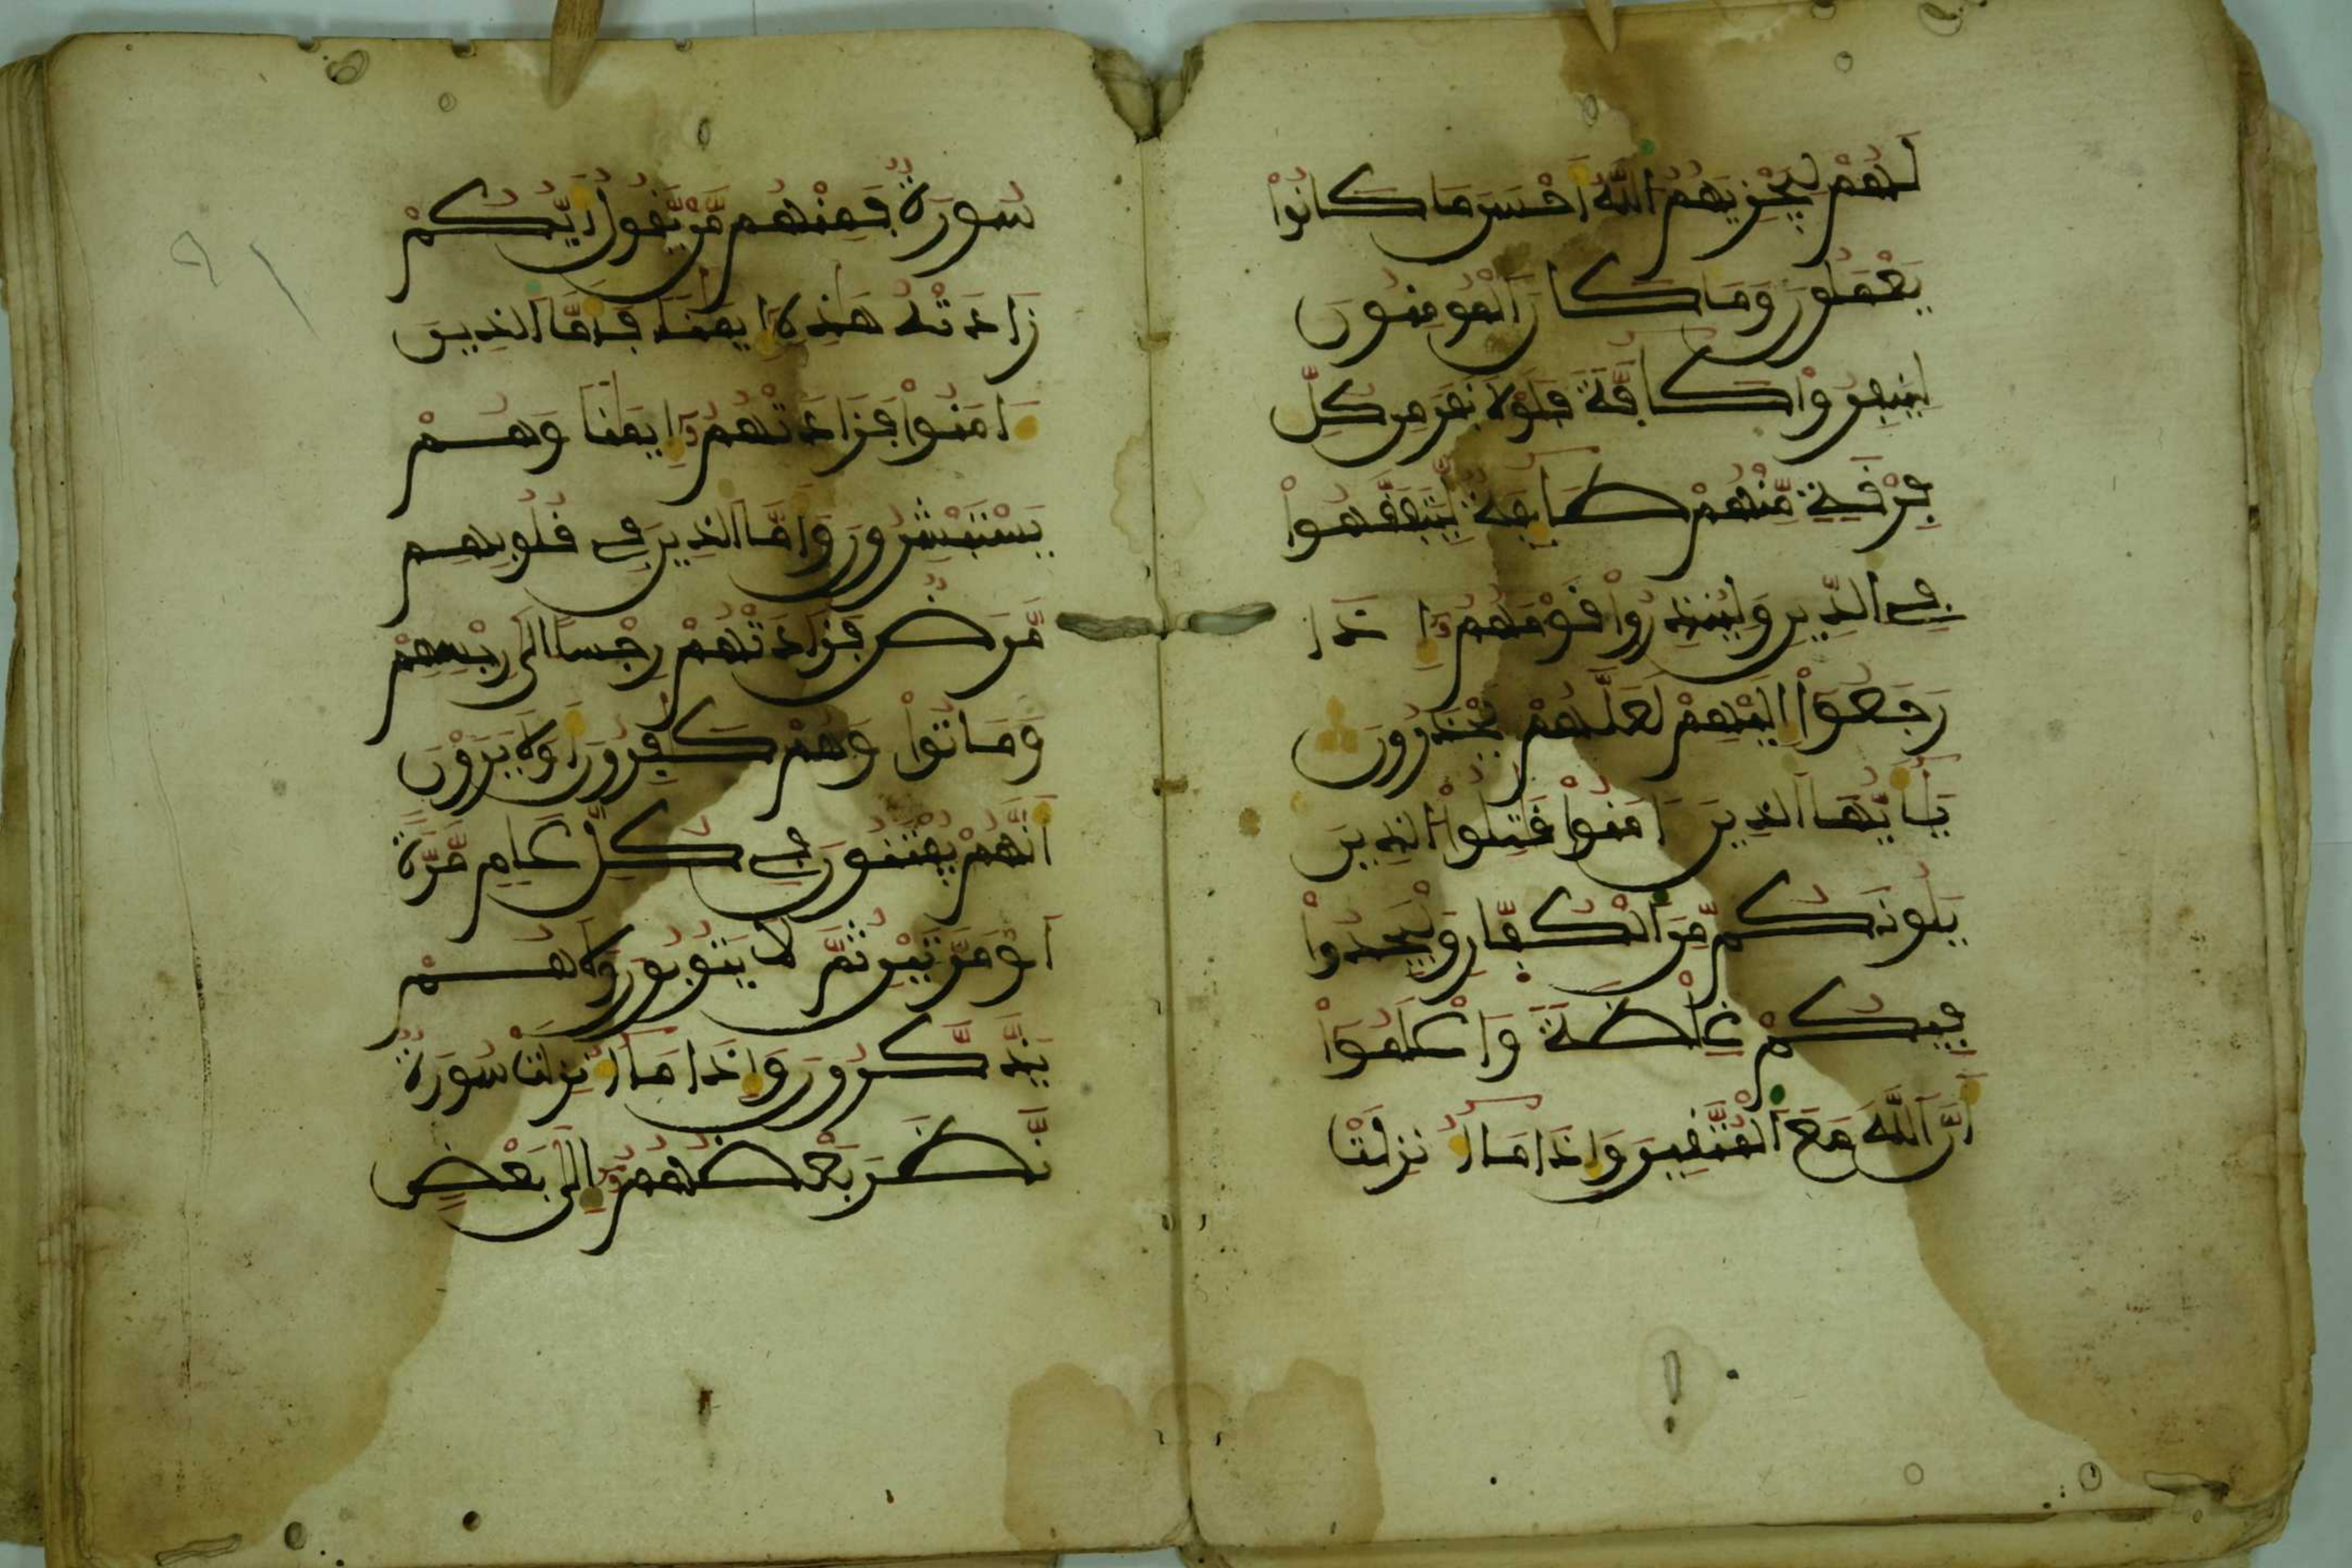 لَهُمْ لِيَجْزِيَهُمُ اللَّهُ أَحْسَنَ مَا كَانُواْ
يَعْمَلُونَ وَمَا كَانَ الْمُومِنُونَ
لِيَنفِرُواْ كَآفَّةً فَلَوْلَا نَفَرَ مِن كُلِّ
فِرْقَةٍ مِّنْهُمْ طَآئِفَةٌ لِّيَتَفَقَّهُواْ
فِي الدِّينِ وَلِيُنذِرُواْ قَوْمَهُمُ إِذَا
رَجَعُواْ إِلَيْهِمْ لَعَلَّهُمْ يَحْذَرُونَ
يَٰأَيُّهَا الذِينَ ءَامَنُواْ قَٰتِلُواْ الذِينَ
يَلُونَكُم مِّنَ الْكُفَّارِ وَلْيَجِدُواْ
فِيكُمْ غِلْظَةً وَاعْلَمُواْ
أَنَّ اللَّهَ مَعَ الْمُتَّقِينَ وَإِذَا مَآ أُنزِلَتْ
سُورَةٌ فَمِنْهُم مَّنْ يَّقُولُ أَيُّكُمْ
زَادَتْهُ هَٰذِهِ إِيمَٰناً فَأَمَّا الذِينَ
ءَامَنُواْ فَزَادَتْهُمُ إِيمَٰناً وَهُمْ
يَسْتَبْشِرُونَ وَأَمَّا الذِينَ فِي قُلُوبِهِم
مَّرَضٌ فَزَادَتْهُمْ رِجْساً إِلَىٰ رِجْسِهِمْ
وَمَاتُواْ وَهُمْ كَٰفِرُونَ أَوَلَا يَرَوْنَ
أَنَّهُمْ يُفْتَنُونَ فِي كُلِّ عَامٍ مَّرَّةً
أَوْ مَرَّتَيْنِ ثُمَّ لَا يَتُوبُونَ وَلَا هُمْ
يَذَّكَّرُونَ وَإِذَا مَآ أُنزِلَتْ سُورَةٌ
نَّظَرَ بَعْضُهُمُ إِلَىٰ بَعْضٍ